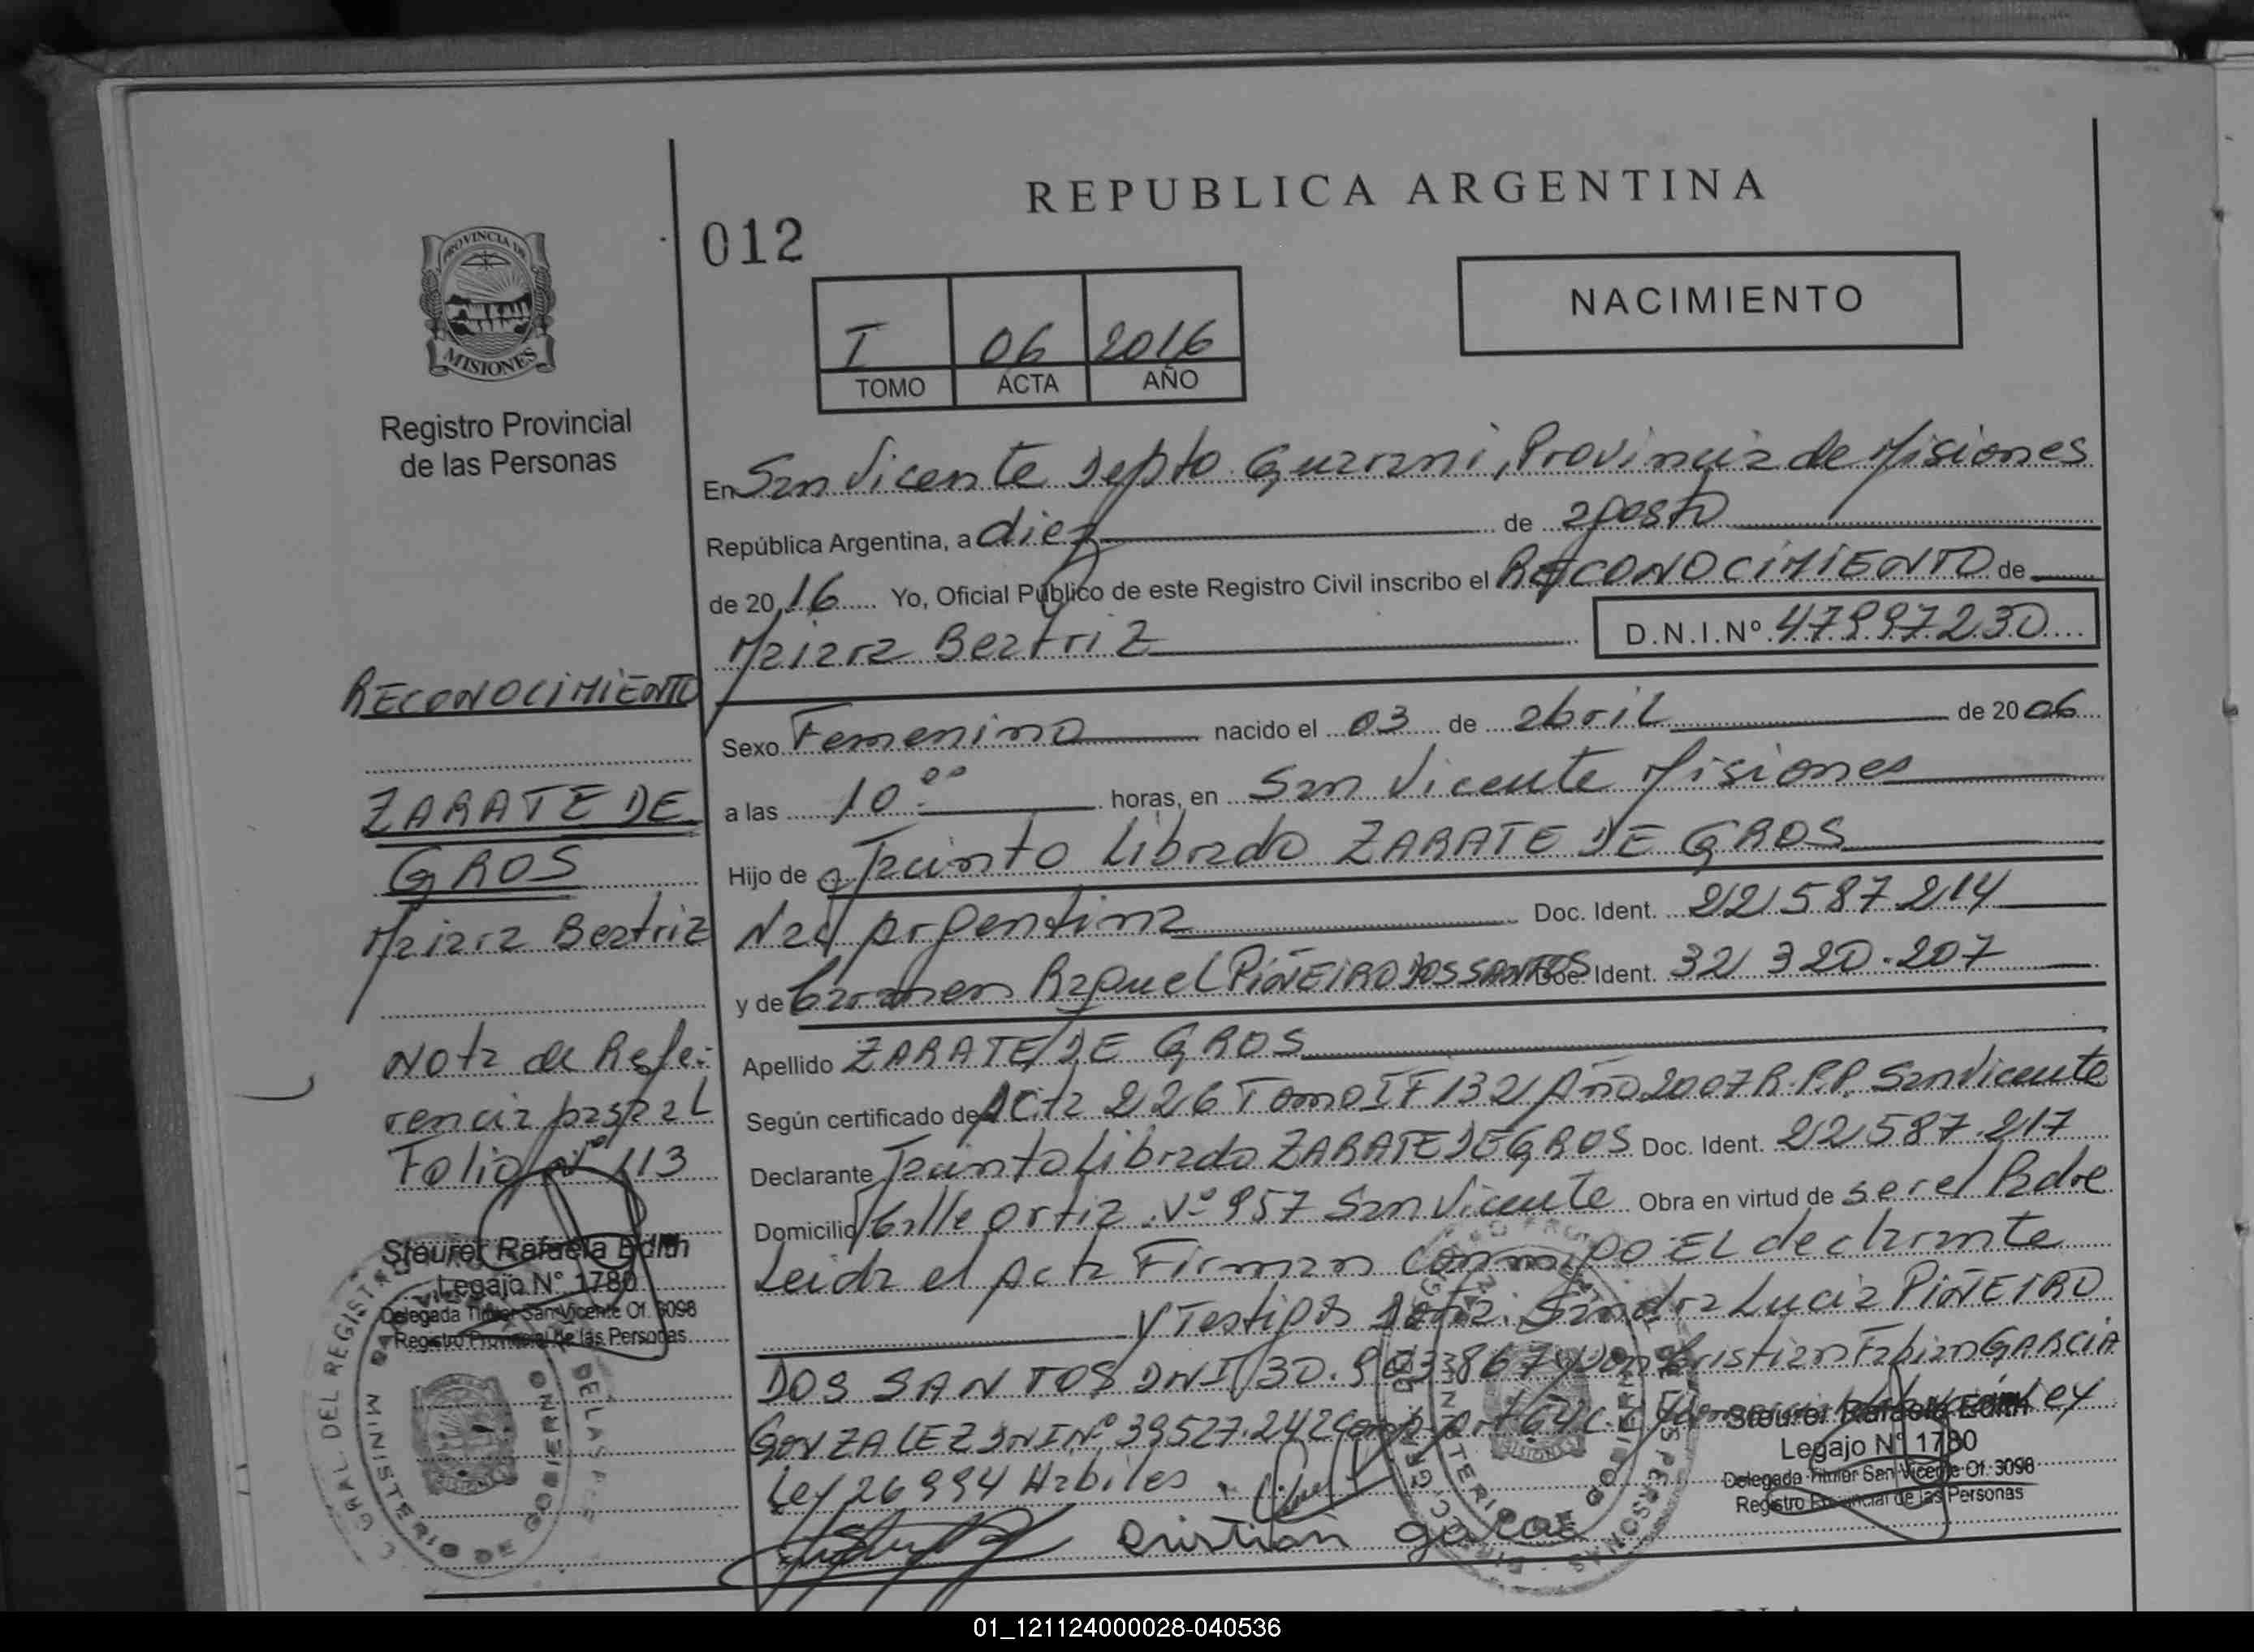 REPUBLICA ARGENTINA
012
NACIMIENTO
PROVINCIA DE
MISIONES
Registro Provincial
de las Personas
I 06 2016
TOMO ACTA AÑO
En San Vicente Depto Guarani, Provincia de Misiones
República Argentina, a diez de agosto
de 2016 Yo, Oficial Público de este Registro Civil inscribo el RECONOCIMIENTO de
Maiara Beatriz D.N.I.Nº 47997230
RECONOCIMIENTO
ZARATE DE
GROS
Maiara Beatriz
Nota de Refe-
rencia pasa al
Folio Nº 113
Steurer Rafaela Edith
Legajo N° 1780
Delegada Titular San Vicente Of. 3098
Registro Provincial de las Personas
Sexo Femenino nacido el 03 de abril de 2006
a las 10:00 horas, en San Vicente Misiones
Hijo de Jacinto Librado ZARATE DE GROS
Nac Argentina Doc. Ident. 22 587 214
y de Carmen Raquel PIÑEIRO DOS SANTOS Doc. Ident. 32 320.207
Apellido ZARATE DE GROS
Según certificado de Acta 226 Tomo I F 132 Año 2007 R.P.P. San Vicente
Declarante Jacinto Librado ZARATE DE GROS Doc. Ident. 22 587.217
Domicilio Calle Ortiz Nº 957 San Vicente Obra en virtud de ser el Padre
Leida el Acta Firman conmigo EL declarante
y Testigos Sandra Lucia PIÑEIRO
DOS SANTOS DNI 30.9 3867 y Don Cristian Fabian GARCIA
GONZALEZ DNI Nº 39527.242 Ley
Ley 26994 Habiles
Cristian garcia
Steurer Rafaela Edith
Legajo N° 1780
Delegada Titular San Vicente Of. 3098
Registro Provincial de las Personas
01_121124000028-040536